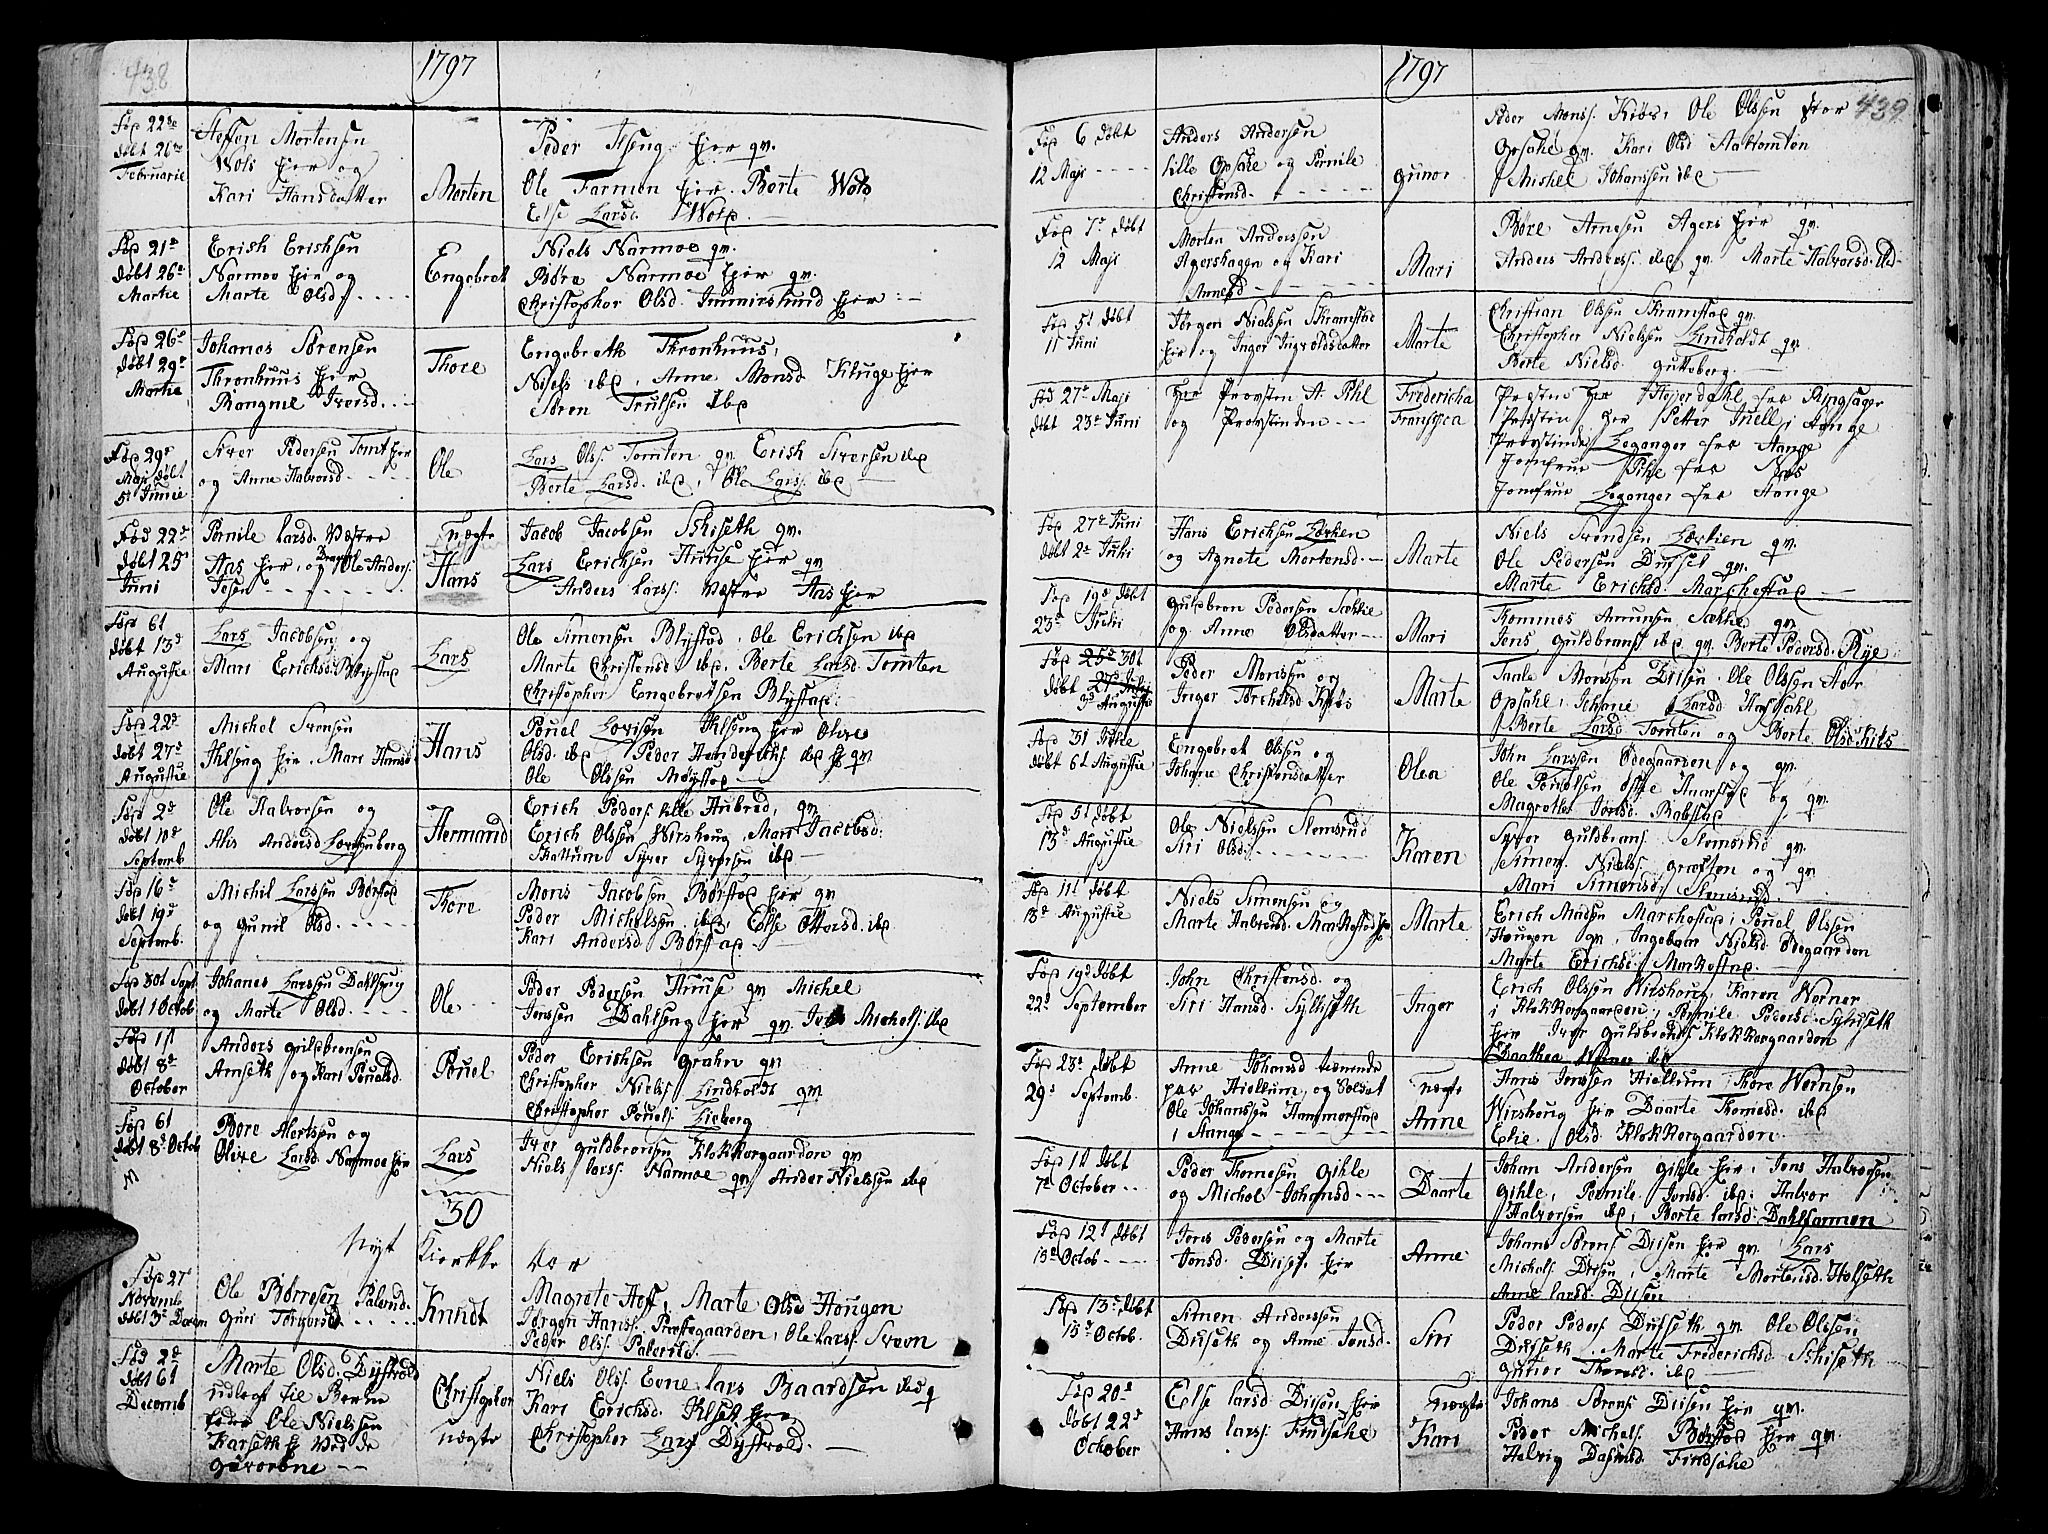 438
1797
Fød 22de
døbt 26de
Februarie
Steffen Mortensen
Wols hier og
Kari Hansdatter
Morten
Peder Ilseng hier gm.
Ole Farmen hier. Berte Wols
Else Larsd. Wols
Fød 21de
døbt 26de
Martie
Erich Erichsen
Narmoe hier og
Marte Olsd.
Engebret
Niels Narmoe gm.
Børe Narmoe hier gm.
Christopher Olsd. Immirslund hier
Fød 26de
døbt 29de
Martie
Johanes Sørensen
Thronhuus hier
Rangnil Iversd.
Thore
Engebreth Thronhuus,
Niels ibd, Anne Monsd. Kluge hier
Søren Trulsen ibd
Fød 29de
Maji døbt
5t Junie
Siver Pedersen Tomt hier
og Anne Halvorsd
Ole
Lars Ols. Tomten gm Erich Siversen ibd
Berte Larsd. ibd, Ole Lars. ibd
Fød 22de
døbt 25
Juni
Pernile Larsd. Vestre
Aas hier, og Ole Anders.
Hans
Uægte
Jacob Jacobsen Schiseth gm.
Lars Erichsen Huuse hier gm
Anders Lars. Vestre Aas hier
Fød 6t
døbt 13d
Augustie
Lars Jacobsen og
Mari Erichsd. Blystad
Lars
Ole Simensen Blystad, Ole Erichsen ibd
Marte Christensd ibd, Berte Larsd. Tomten
Christopher Engebretsen Blystad
Fød 22d
døbt 27d
Augustie
Michel Svensen
Ilseng hier. Mari Hansd
Hans
Pouel Ilseng hier Olive
Olsd. ibd Peder Henderichs. ibd gm
Ole Olssen Møystad
Fød 2d
døbt 10d
Septemb
Ole Halvorsen og
Alis Andersd
Hermand
Erich Peders. lille Aubred, gm
Erich Olssen Wirshoug, Mari Jacobsd.
Kattum Syver Syversen ibd
Fød 16d
døbt 19d
Septemb.
Michil Larssen Børstad
og Gunil Olsd.
Thore
Mons Jacobsen Børstad hier gm
Peder Michelsen ibd, Else Ottersd. ibd
Kari Andersd Børstad
Fød 30t Sept
døbt 1 Octob
Johanes Larssen Dahlseng
og Marte Olsd.
Ole
Peder Pedersen Huuse gm Michel
Jenssen Dahlseng hier gm. Michels. ibd
Fød 1st
døbt 8d
October
Anders Guldbrensen
Arnseth og Kari Pouelsd.
Pouel
Peder Erichsen Grahn gm
Christopher Niels. Lindholdt gm.
Christopher Pouels. Lieberg
Fød 6t
døbt 8d Octob
Bore Alertsen og
Olive Larsd Narmoe hier
Lars
Iver Guldbrensen Klokkergaarden gm
Niels Lars. Narmoe gm Ander Nielssen ibd
30
Nyt Kierkke Aar
Fød 27d
Novemb
døbt 3d Decem
Ole Børresen Palerud
Guri
Knudt
Magrete Hoff, Marte Olsd Hougen
Jørgen Hans. Præstegaarden, Ole Lars. Sveen
Peder Ols. Palerud
Fød 2d
døbt 6t
Decemb
Marte Olsd. Dystvold
udlagt til Barne
fader Ole Nielssen
Karseth
Christopher
uægte
Niels Ols. Evne Lars Baardsen ibd
Kari Erichsd. Ilset hier
Christopher Lars Dystvold.
1797
439
Fød 6 døbt
12 Maji
Anders Andersen
Lille Opsahl og Pernile
Christensd.
Gunor
Peder Mons. Kiøs, Ole Olssen Stor
Opsahl gm. Kari Olsd Aaltomten
Michel Johanssen ibd
Fød 7d døbt
12 Maji
Morten Anderssen
Agershagen og Kari
Arnesd
Mari
Børe Arnesen Agers hier gm.
Anders Anders. ibd gm. Marte Halvorsd. ibd
Fød 5t døbt
11 Juni
Jørgen Nielssen Skramstad
hier og Inger Ingvoldsdatter
Marte
Christian Olssen Skramstad gm
Christopher Nielssen Lindholdt gm
Berte Nielsd. Gultoberg
Fød 27d Maji
døbt 23d Juni
Her Provsten A. Pihl
og Provstinden
Fredericha
Francisca
Præsten her Heyerdahl fra Ringsager
Præsten her Petter Juell i Stange
Provstinde Leganger fra Stange
Jomfrue Pihle fra Næs
Jomfrue Leganger fra Stange
Fød 27d Juni
døbt 2d Juli
Hans Erichsen Lørkien
og Agnete Mortensd.
Marte
Niels Svendsen Lærkien gm.
Ole Pedersen Dysel gm.
Marte Erichsd. Marchestad
Fød 19d døbt
23d Juli
Guldbron Pedersen Sælie
og Anne Olsdatter
Mari
Thommes Amunsen Sælie gm
Jens Guldbrans. ibd gm. Berte Pedersd. Rye
Fød 25d 30t
døbt 27d Julij
3d Augusti
Peder Monssen og
Inger Torchelsd Kiøs
Marte
Taale Monssen Diisen. Ole Olssen Stor
Opsahl, Johane Larsd
Berte Larsd Tomten og Berte Olsd. Kiøs
Fød 31 Julie
døbt 6t Augustie
Engebret Olssen og
Johane Christensdatter
Olea
John Larssen Ødegaarden og gm.
Ole Pouelsen Østre Aarstad og, gm.
Magrethe Jensd. Babstad
Fød 5t døbt
13d Augustie
Ole Nielssen Stemsrud
Siri Olsd.
Karen
Syver Guldbrans. Stemsrud gm.
Simen Niels. Græsen og gm
Mari Simensd. Stemsrud.
Fød 11t døbt
13d Augustie
Niels Simensen og
Marte Halvorsd. Markestad
Marte
Erich Madsen Marchestad, Pouel Olssen
Hougen gm, Ingeborn Nielsd. Ødegaarden
Marte Erichsd. Markestad
Fød 19d døbt
22d September
John Christensd. og
Siri Hansd. Sylliseth
Inger
Erich Olssen Wirshoug, Karen Werner
i Klokkergaarden, Pernile Pedersd. Sylliseth
hier Iver Guldbrands. Klokkergaarden
Daathea Werner ibd
Fød 23d døbt
29d Septemb.
Anne Johansd. tienende
paa Hiellum, og Soldat
Ole Johanssen Hammerstad
i Stange
Uægte
Anne
Hans Jenssen Hiellum Thore Wernsen
Wirshoug hier Daarte Thomesd. ibd
Elie Olsd. Klokkergaarden
Fød 1t døbt
7d October
Peder Thomesen Gihle
og Michel Johansd
Daarte
Johan Andersen Gihle hier, Jens Halvorsen
Gihle, Pernile Jensd. ibd, Halvor
Halvorsen ibd, Berte Larsd. Dahlfarmen
Fød 12d døbt
15d Octob
Jens Pedersen og Marte
Jensd. Diisen hier
Anne
Johans Sørens. Diisen hier gm. Lars
Michels. Diisen, Marte Mortensd. Holseth
Anne Larsd. Diisen
Fød 13d døbt
15d Octob.
Simen Anderssen
Dysseth og Anne Jensd.
Siri
Peder Peders. Dysseth gm Ole Olssen
Dysseth. Marte Frederichsd. Schiseth
Gunor Thoresd. ibd
Fød 20d
døbt 22d
October
Else Larsd. Diisen hier
Hans Lars. Findsahl
Uægte
Kari
Johans Sørens. Diisen hier gm.
Peder Michels. Børstad hier gm
Helvig Dagnsd. Findsahl